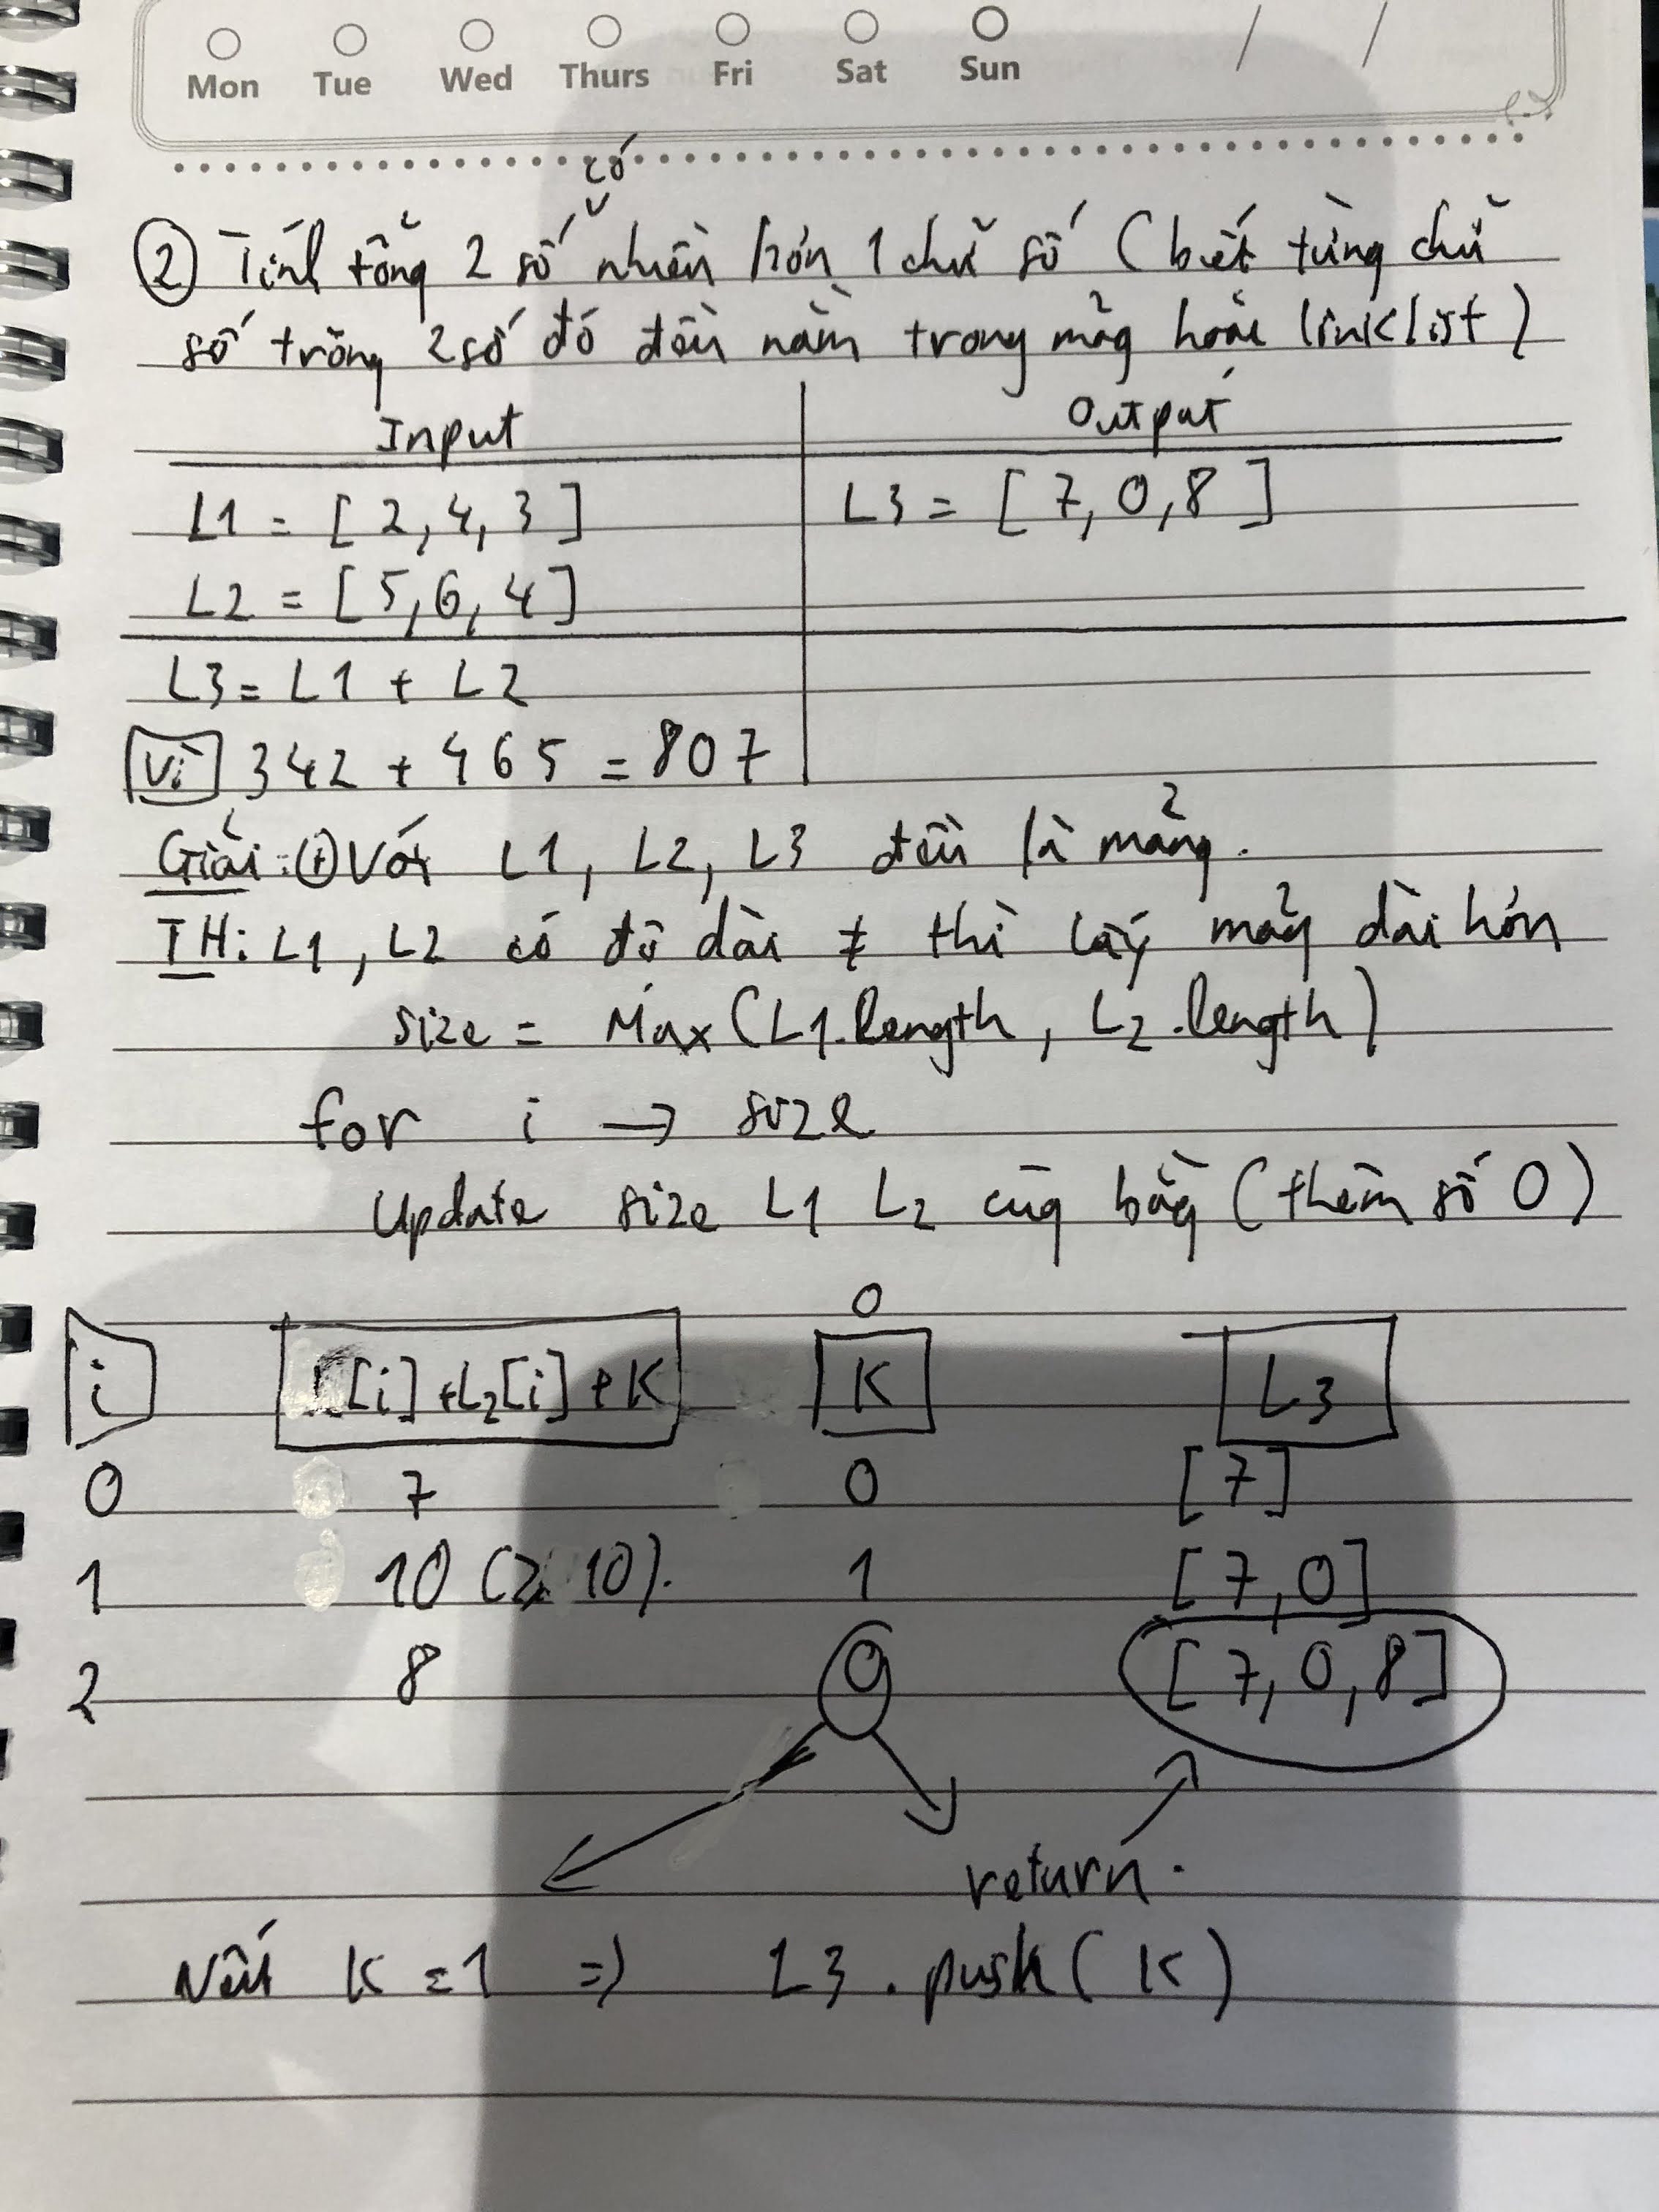 Mon Tue Wed Thurs Fri Sat Sun / /
có
② Tính tổng 2 số nhiều hơn 1 chữ số (biết từng chữ
số trong 2 số đó đều nằm trong mảng hoặc linklist)
Input Output
L1 = [2,4,3] L3 = [7,0,8]
L2 = [5,6,4]
L3 = L1 + L2
Vì 342 + 465 = 807
Giải: ⊕ Với L1, L2, L3 đều là mảng.
TH: L1, L2 có độ dài ≠ thì lấy mảng dài hơn
size = Max(L1.length, L2.length)
for i → size
Update size L1 L2 cùng bằng (thêm số 0)
0
i [i]+L2[i]+K K L3
0 7 0 [7]
1 10 (≥ 10). 1 [7,0]
2 8 0 [7,0,8]
return.
Nếu K=1 => L3.push(K)